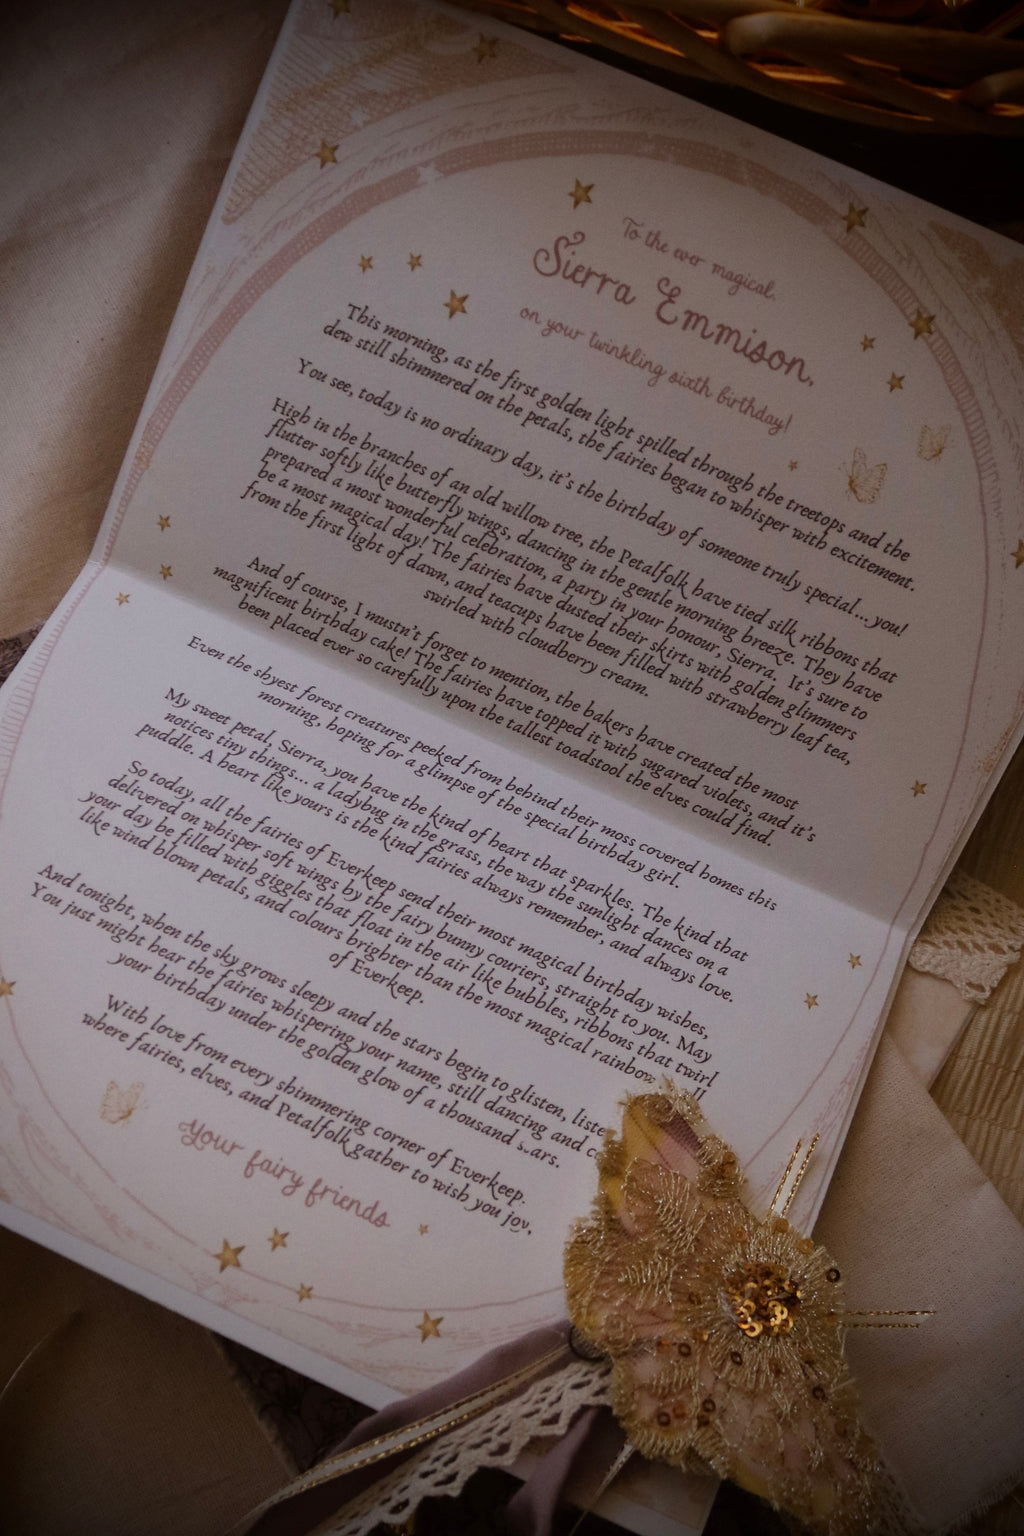 To the ever magical,
Sierra Emmison,
on your twinkling sixth birthday!
This morning, as the first golden light spilled through the treetops and the
dew still shimmered on the petals, the fairies began to whisper with excitement.
You see, today is no ordinary day, it's the birthday of someone truly special... you!
High in the branches of an old willow tree, the Petalfolk have tied silk ribbons that
flutter softly like butterfly wings, dancing in the gentle morning breeze. They have
prepared a most wonderful celebration, a party in your honour, Sierra. It's sure to
be a most magical day! The fairies have dusted their skirts with golden glimmers
from the first light of dawn, and teacups have been filled with strawberry leaf tea,
swirled with cloudberry cream.
And of course, I mustn't forget to mention, the bakers have created the most
magnificent birthday cake! The fairies have topped it with sugared violets, and it's
been placed ever so carefully upon the tallest toadstool the elves could find.
Even the shyest forest creatures peeked from behind their moss covered homes this
morning, hoping for a glimpse of the special birthday girl.
My sweet petal, Sierra, you have the kind of heart that sparkles. The kind that
notices tiny things... a ladybug in the grass, the way the sunlight dances on a
puddle. A heart like yours is the kind fairies always remember, and always love.
So today, all the fairies of Everkeep send their most magical birthday wishes,
delivered on whisper soft wings by the fairy bunny couriers, straight to you. May
your day be filled with giggles that float in the air like bubbles, ribbons that twirl
like wind blown petals, and colours brighter than the most magical rainbow
of Everkeep.
And tonight, when the sky grows sleepy and the stars begin to glisten,
You just might hear the fairies whispering your name, still dancing and
your birthday under the golden glow of a thousand stars.
With love from every shimmering corner of Everkeep.
where fairies, elves, and Petalfolk gather to wish you joy,
your fairy friends